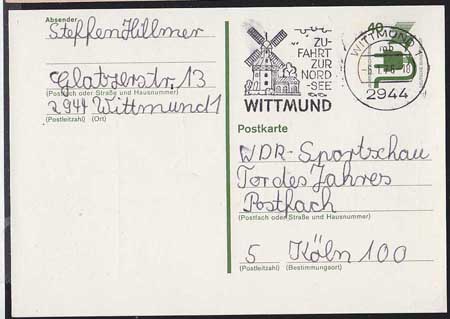 Absender
Steffen Hillmer
Glatzerstr. 13
(Postfach oder Straße und Hausnummer)
2944 Wittmund 1
(Postleitzahl) (Ort)
ZU-
FAHRT
ZUR
NORD
-SEE
WITTMUND
40
WITTMUND 1
mb
2944
Postkarte
WDR-Sportschau
Tor des Jahres
Postfach
(Postfach oder Straße und Hausnummer)
5 Köln 100
(Postleitzahl) (Bestimmungsort)